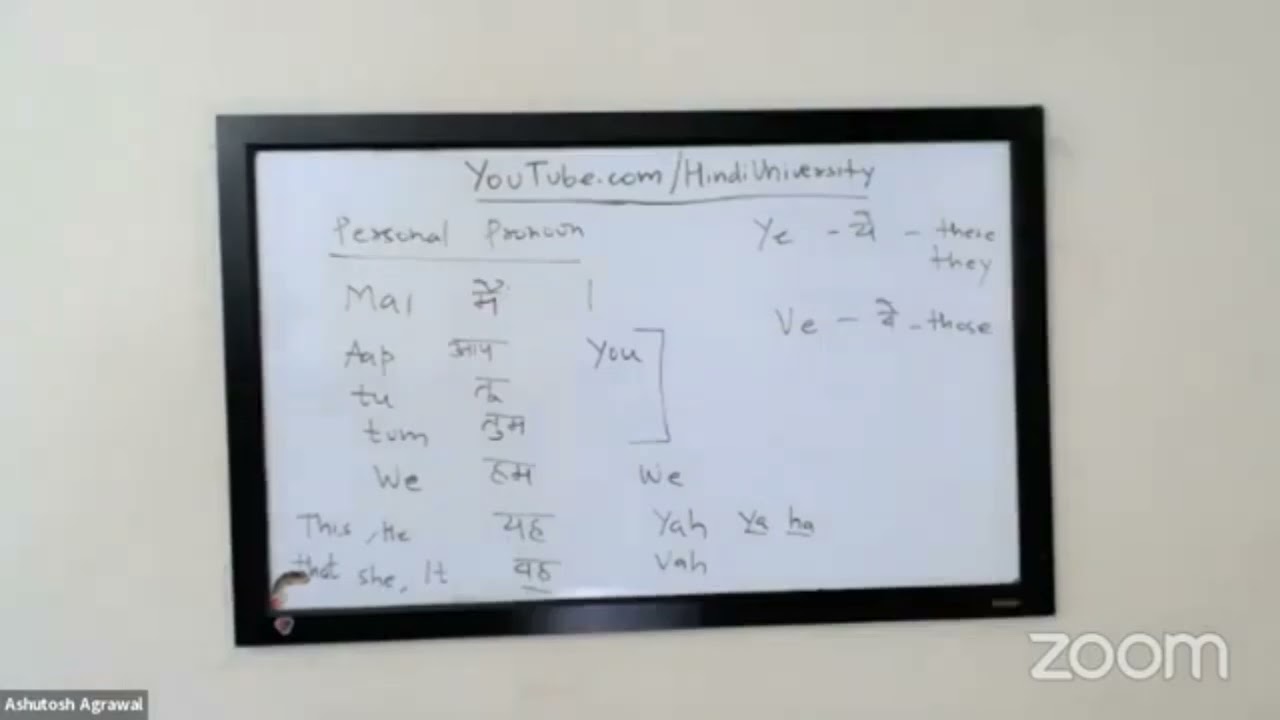 YouTube.com/HindiUniversity
Personal Pronoun
Mai मैं I
Aap आप You
tu तू
tum तुम
We हम We
This, He यह Yah Ya ha
that she, It वह Vah
Ye - ये - these
they
Ve - वे - those
zoom
Ashutosh Agrawal